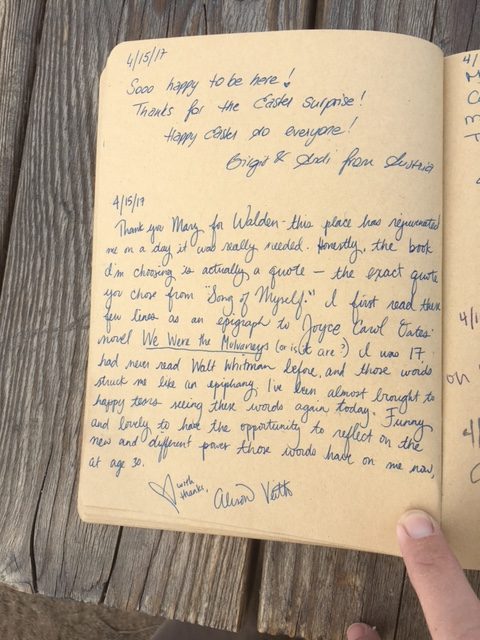 4/15/17
Sooo happy to be here!
Thanks for the Easter surprise!
Happy Easter to everyone!
Birgit & Andi from Austria
4/15/17
Thank you Mary for Walden - this place has rejuvenated
me on a day it was really needed. Honestly, the book
I'm choosing is actually a quote — the exact quote
you chose from "Song of Myself." I first read these
few lines as an epigraph to Joyce Carol Oates'
novel We Were the Mulvaneys (or is it are?) I was 17,
had never read Walt Whitman before, and those words
struck me like an epiphany. I've been almost brought to
happy tears seeing these words again today. Funny
and lovely to have the opportunity to reflect on the
new and different power those words have on me now,
at age 30.
with
thanks,
Alison
4/
4/1
on
4/